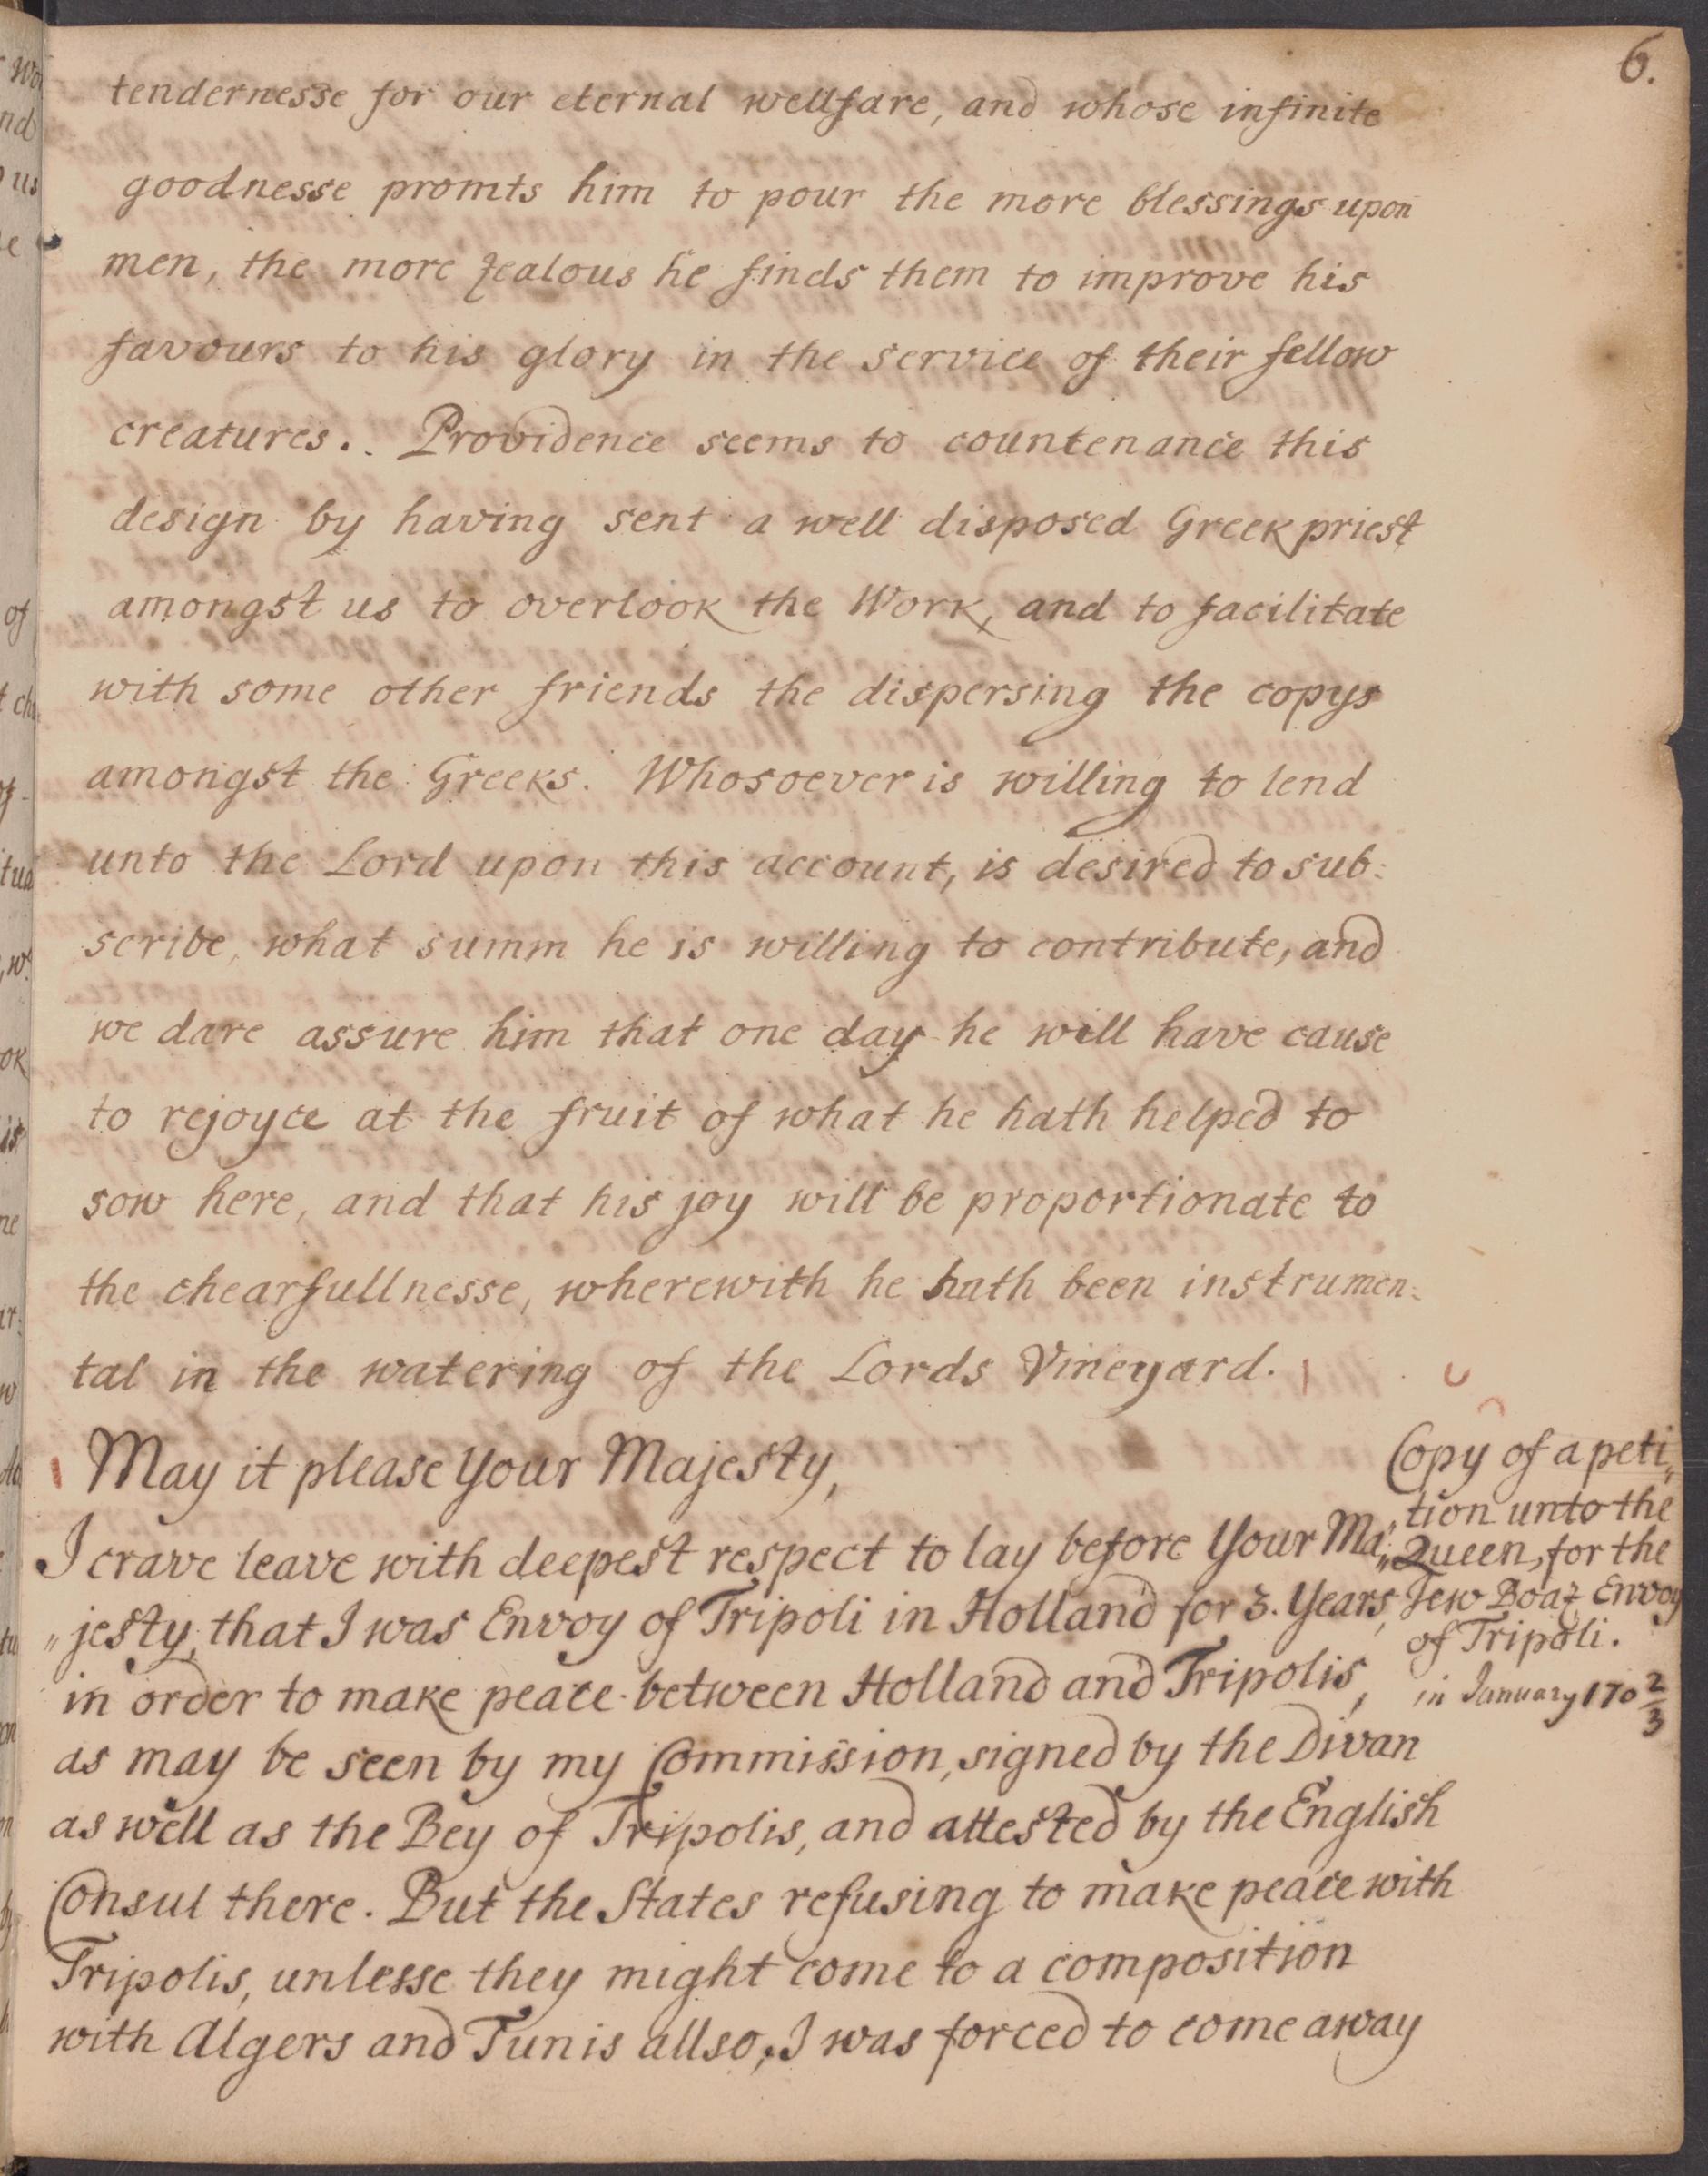 6.
tendernesse for our eternal wellfare, and whose infinite
goodnesse promts him to pour the more blessings upon
men, the more zealous he finds them to improve his
favours to his glory in the service of their fellow
creatures.. Providence seems to countenance this
design by having sent a well disposed Greek priest
amongst us to overlook the Work, and to facilitate
with some other friends the dispersing the copys
amongst the Greeks. Whosoever is willing to lend
unto the Lord upon this account, is desired to sub:
scribe, what summ he is willing to contribute, and
we dare assure him that one day he will have cause
to rejoyce at the fruit of what he hath helped to
sow here, and that his joy will be proportionate to
the chearfullnesse, wherewith he hath been instrumen:
tal in the watering of the Lords Vineyard.
May it please Your Majesty,
I crave leave with deepest respect to lay before Your Ma„
„jesty, that I was Envoy of Tripoli in Holland for 3. Years,
in order to make peace between Holland and Tripolis,
as may be seen by my Commission, signed by the Divan
as well as the Bey of Tripolis, and attested by the English
Consul there. But the States refusing to make peace with
Tripolis, unlesse they might come to a composition
with Algers and Tunis allso, I was forced to come away
Copy of a peti„
„tion unto the
Queen, for the
Jew Boaz Envoy
of Tripoli.
in January 170 2/3